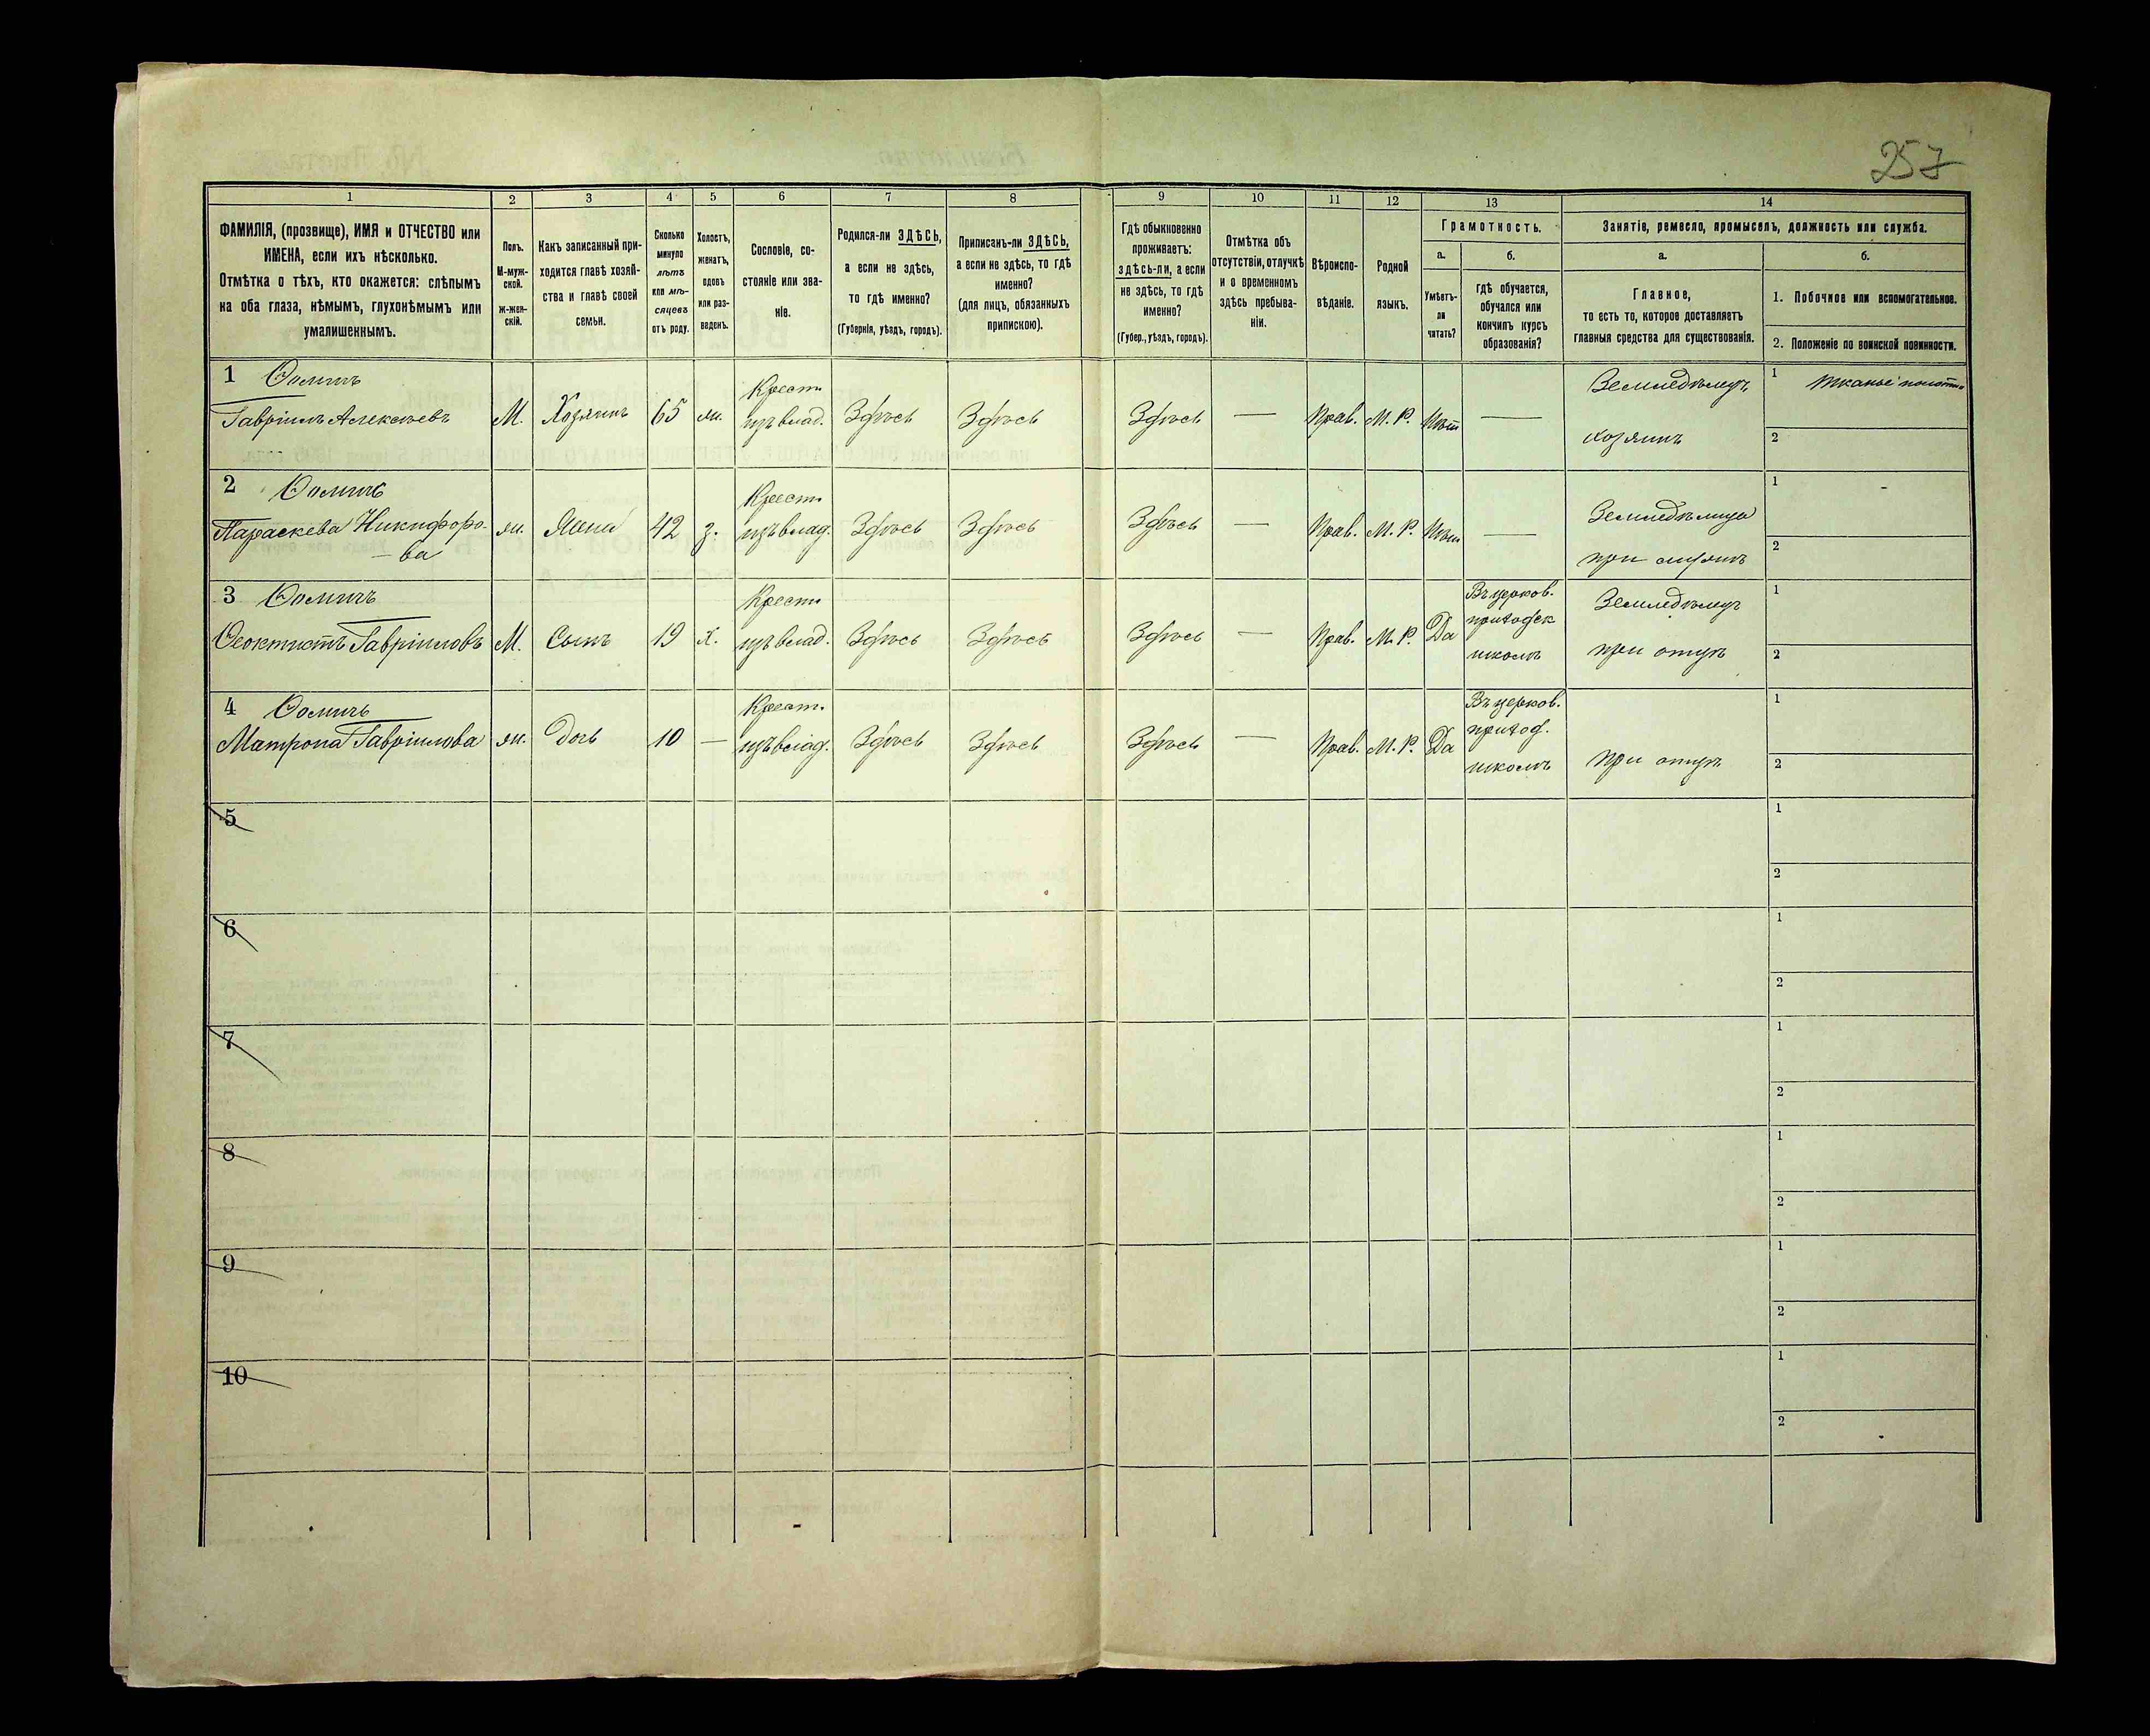 257
1 2 3 4 5 6 7 8 9 10 11 12 13 14
ФАМИЛІЯ, (прозвище), ИМЯ и ОТЧЕСТВО или
ИМЕНА, если ихъ нѣсколько.
Отмѣтка о тѣхъ, кто окажется: слѣпымъ
на оба глаза, нѣмымъ, глухонѣмымъ или
умалишеннымъ.
Полъ.
М-муж-
ской.
ж-жен-
скій.
Какъ записанный при-
ходится главѣ хозяй-
ства и главѣ своей
семьи.
Сколько
минуло
лѣтъ
или мѣ-
сяцевъ
отъ роду.
Холостъ,
женатъ,
вдовъ
или раз-
веденъ.
Сословіе, со-
стояніе или зва-
ніе.
Родился-ли ЗДѢСЬ,
а если не здѣсь,
то гдѣ именно?
(Губернія, уѣздъ, городъ).
Приписанъ-ли ЗДѢСЬ,
а если не здѣсь, то гдѣ
именно?
(для лицъ, обязанныхъ
припискою).
Гдѣ обыкновенно
проживаетъ:
здѣсь-ли, а если
не здѣсь, то гдѣ
именно?
(Губер., уѣздъ, городъ).
Отмѣтка объ
отсутствіи, отлучкѣ
и о временномъ
здѣсь пребыва-
ніи.
Вѣроиспо-
вѣданіе.
Родной
языкъ.
Грамотность.
а.
Умѣетъ-
ли
читать?
б.
гдѣ обучается,
обучался или
кончилъ курсъ
образованія?
Занятіе, ремесло, промыселъ, должность или служба.
а.
Главное,
то есть то, которое доставляетъ
главныя средства для существованія.
б.
1. Побочное или вспомогательное.
2. Положеніе по воинской повинности.
1 Ѳомичъ
Гавріилъ Алексѣевъ М. Хозяинъ 65 ж. Крест. изъ влад. Здѣсь Здѣсь Здѣсь — Прав. М. Р. Нѣт — Земледѣлецъ хозяинъ 1 тканье полотна
2
2 Ѳомичъ
Параскева Никифоро-
ва ж. Жена 42 з. Крест. изъ влад. Здѣсь Здѣсь Здѣсь — Прав. М. Р. Нѣт — Земледѣлица при 1
2
3 Ѳомичъ
Ѳеоктистъ Гавріиловъ М. Сынъ 19 х. Крест. изъ влад. Здѣсь Здѣсь Здѣсь — Прав. М. Р. Да Въ церков. приходск школѣ Земледѣлецъ при отцѣ 1
2
4 Ѳомичъ
Матрона Гавріилова ж. Дочь 10 — Крест. изъ влад. Здѣсь Здѣсь Здѣсь — Прав. М. Р. Да Въ церков. приход. школѣ при отцѣ 1
2
5 1
2
6 1
2
7 1
2
8 1
2
9 1
2
10 1
2